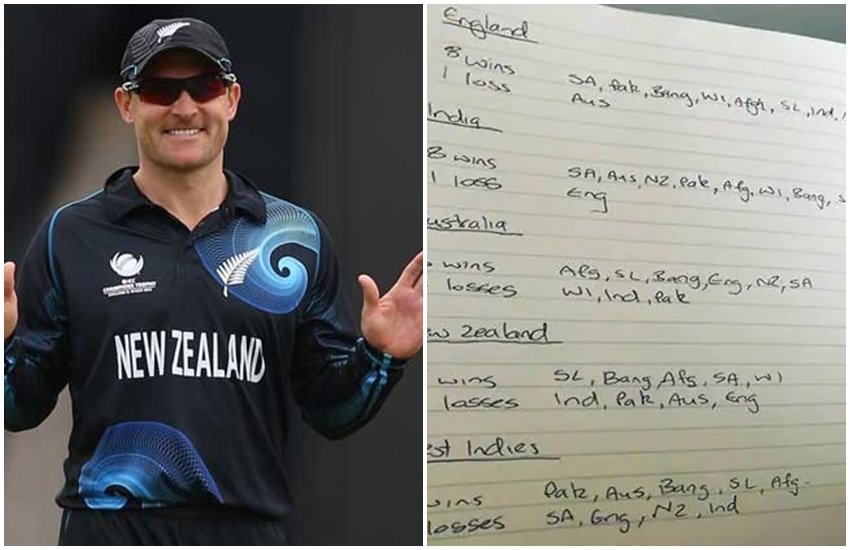 ICC
CHAMPIONS TROPHY
NEW ZEALAND
England
8 wins SA, Pak, Bang, WI, Afgh, SL, Ind,
1 loss Aus
India
8 wins SA, Aus, NZ, Pak, Afg, WI, Bang, S
1 loss Eng
ustralia
wins Afg, SL, Bang, Eng, NZ, SA
losses WI, Ind, Pak
w Zealand
wins SL, Bang, Afg, SA, WI
losses Ind, Pak, Aus, Eng
st Indies
wins Pak, Aus, Bang, SL, Afg.
losses SA, Eng, NZ, Ind